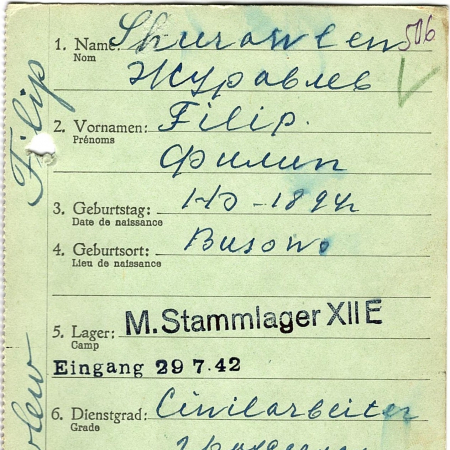 506
1. Name: Shurawlew
Nom
Журавлев
2. Vornamen: Filip.
Prénoms
Филип
3. Geburtstag:
Date de naissance
4. Geburtsort: Busowo
Lieu de naissance
5. Lager: M. Stammlager XII E
Camp
Eingang 29 7.42
6. Dienstgrad: Civilarbeiter
Grade
Filip